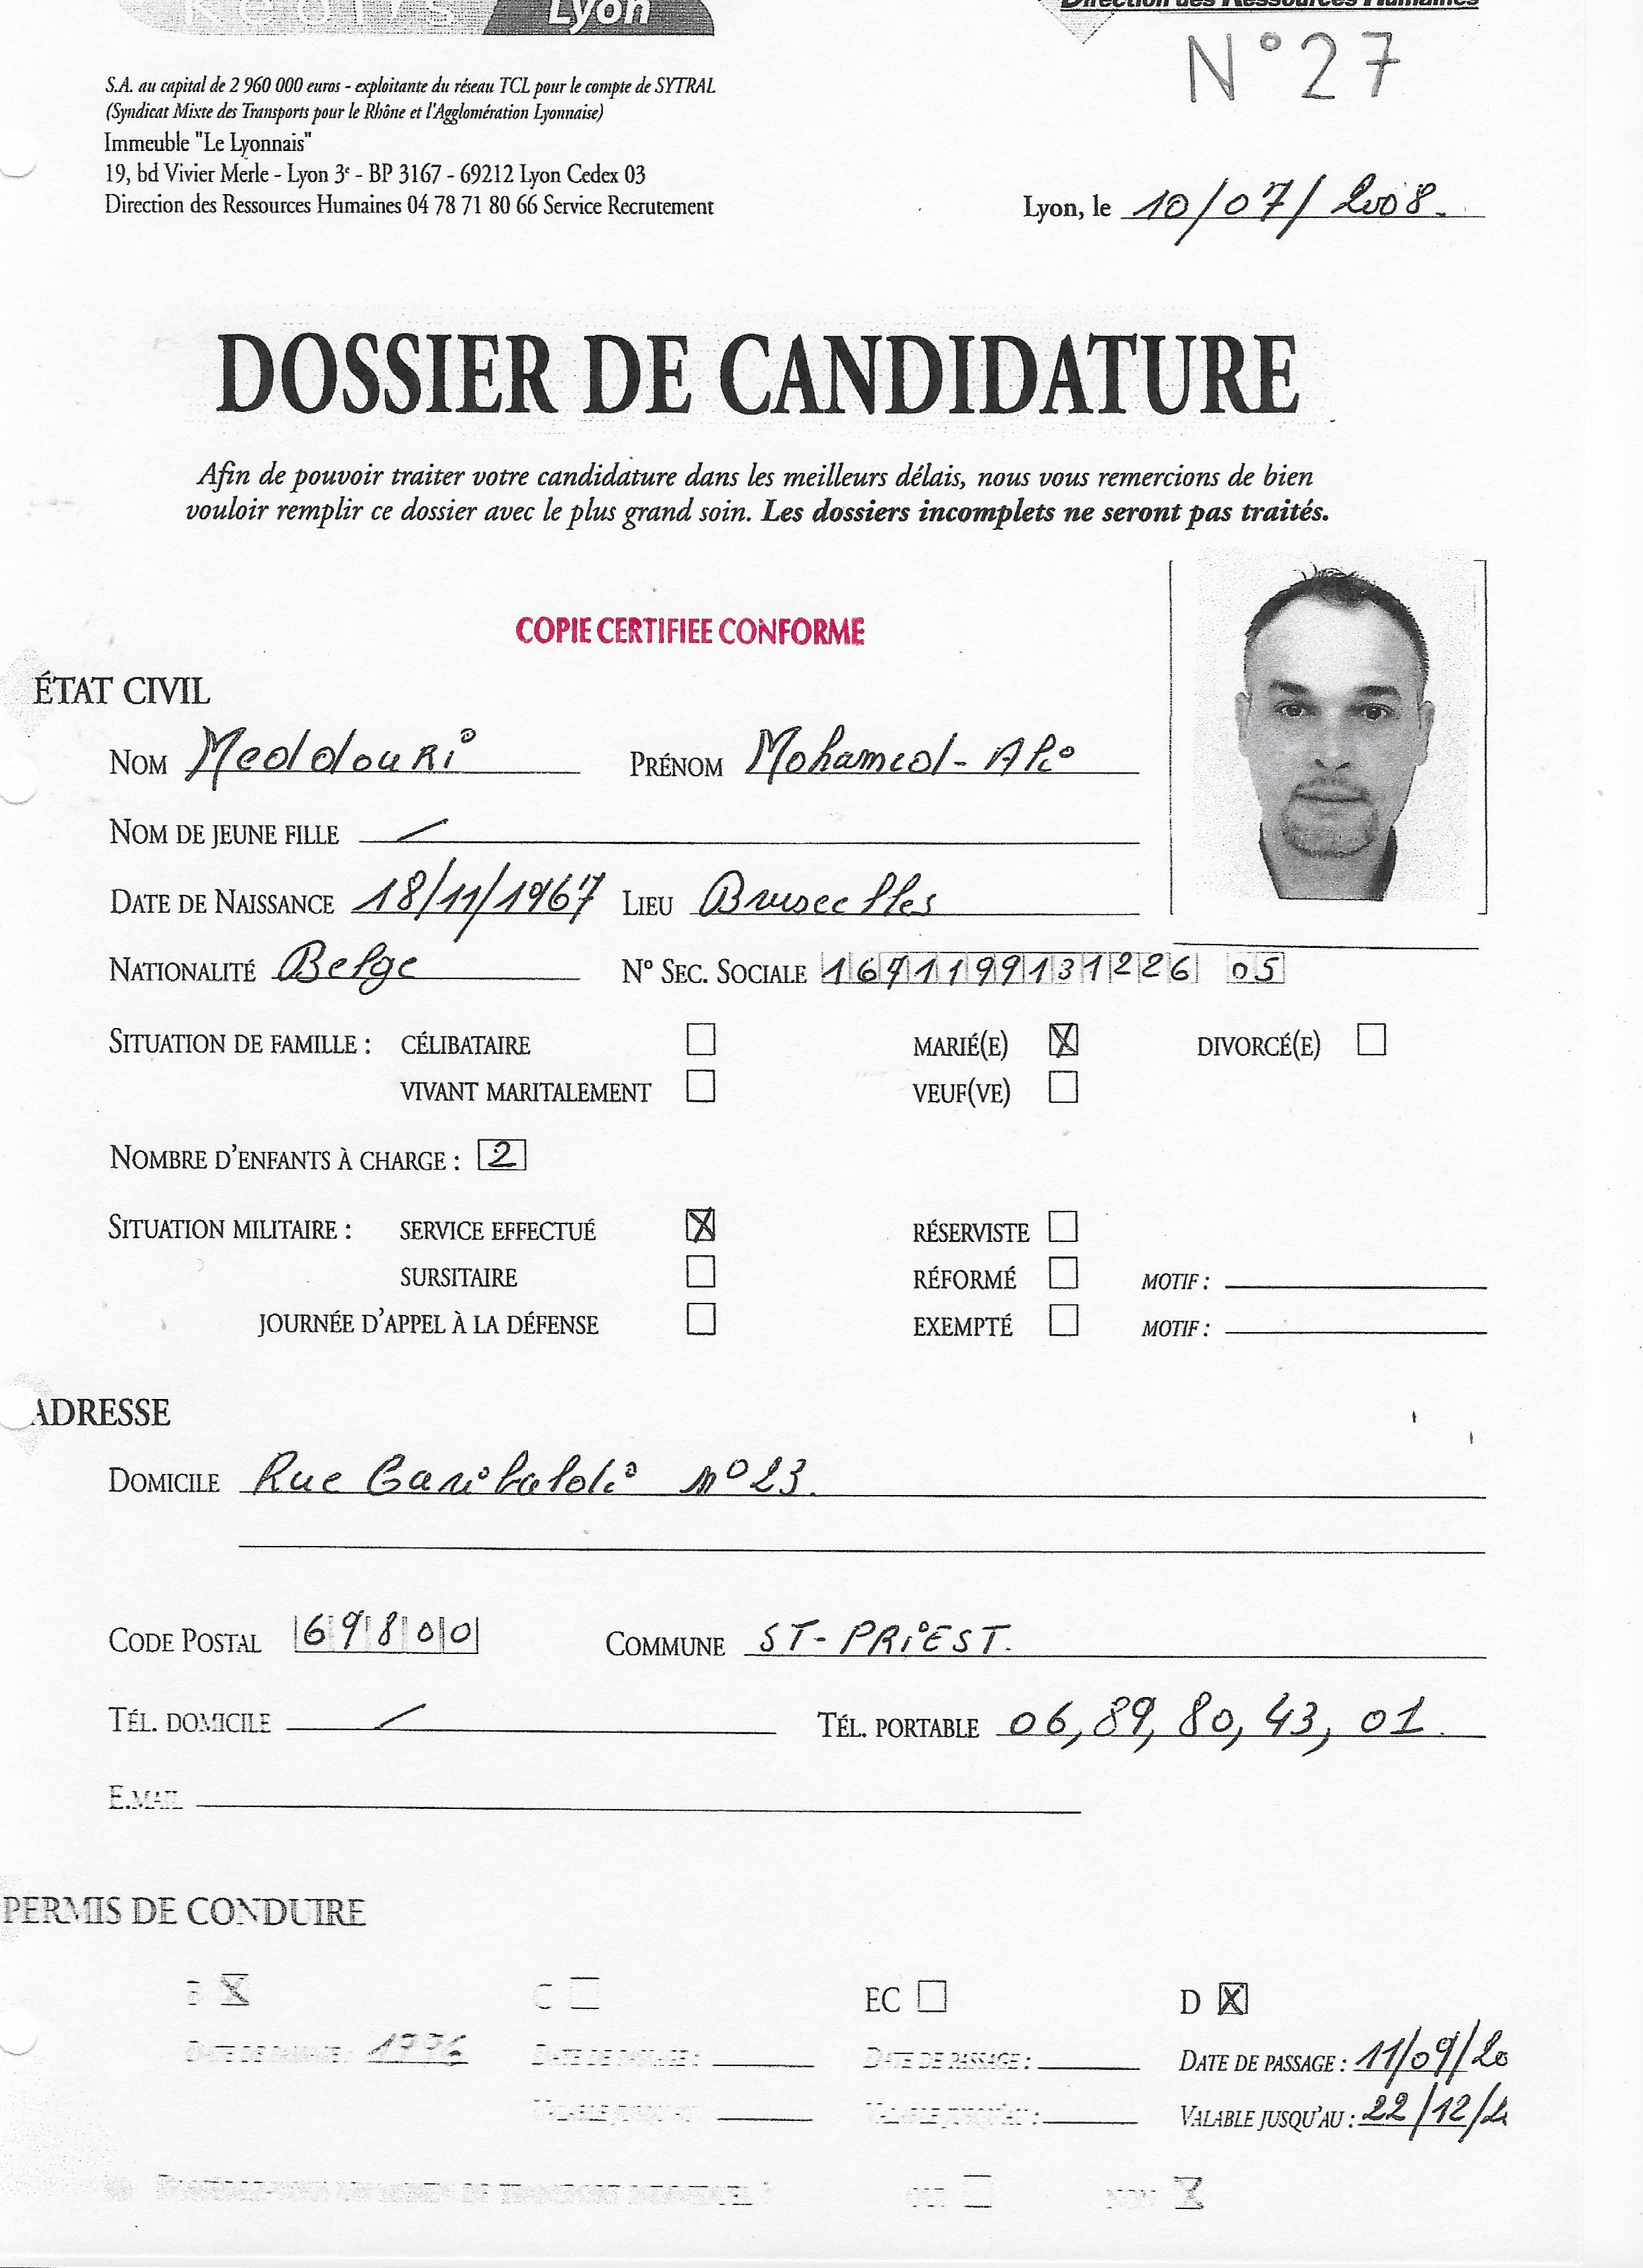 keolis Lyon
Direction des Ressources Humaines
N°27
S.A. au capital de 2 960 000 euros - exploitante du réseau TCL pour le compte de SYTRAL
(Syndicat Mixte des Transports pour le Rhône et l'Agglomération Lyonnaise)
Immeuble "Le Lyonnais"
19, bd Vivier Merle - Lyon 3e - BP 3167 - 69212 Lyon Cedex 03
Direction des Ressources Humaines 04 78 71 80 66 Service Recrutement
Lyon, le 10/07/2008.
DOSSIER DE CANDIDATURE
Afin de pouvoir traiter votre candidature dans les meilleurs délais, nous vous remercions de bien
vouloir remplir ce dossier avec le plus grand soin. Les dossiers incomplets ne seront pas traités.
COPIE CERTIFIEE CONFORME
ÉTAT CIVIL
NOM Meddouri PRÉNOM Mohamed-Ali
NOM DE JEUNE FILLE /
DATE DE NAISSANCE 18/11/1967 LIEU Bruxelles
NATIONALITÉ Belge N° SEC. SOCIALE 1671199131226 05
SITUATION DE FAMILLE : CÉLIBATAIRE MARIÉ(E) X DIVORCÉ(E)
VIVANT MARITALEMENT VEUF(VE)
NOMBRE D'ENFANTS À CHARGE : 2
SITUATION MILITAIRE : SERVICE EFFECTUÉ X RÉSERVISTE
SURSITAIRE RÉFORMÉ MOTIF :
JOURNÉE D'APPEL À LA DÉFENSE EXEMPTÉ MOTIF :
ADRESSE
DOMICILE Rue Garibaldi n°23.
CODE POSTAL 69800 COMMUNE ST-PRiEST.
TÉL. DOMICILE / TÉL. PORTABLE 06,89,80,43,01.
E.MAIL
PERMIS DE CONDUIRE
B X C EC D X
DATE DE PASSAGE : 1996 DATE DE PASSAGE : DATE DE PASSAGE : DATE DE PASSAGE : 11/09/20
VALABLE JUSQU'AU VALABLE JUSQU'AU : VALABLE JUSQU'AU : 22/12/2
OUI NON X